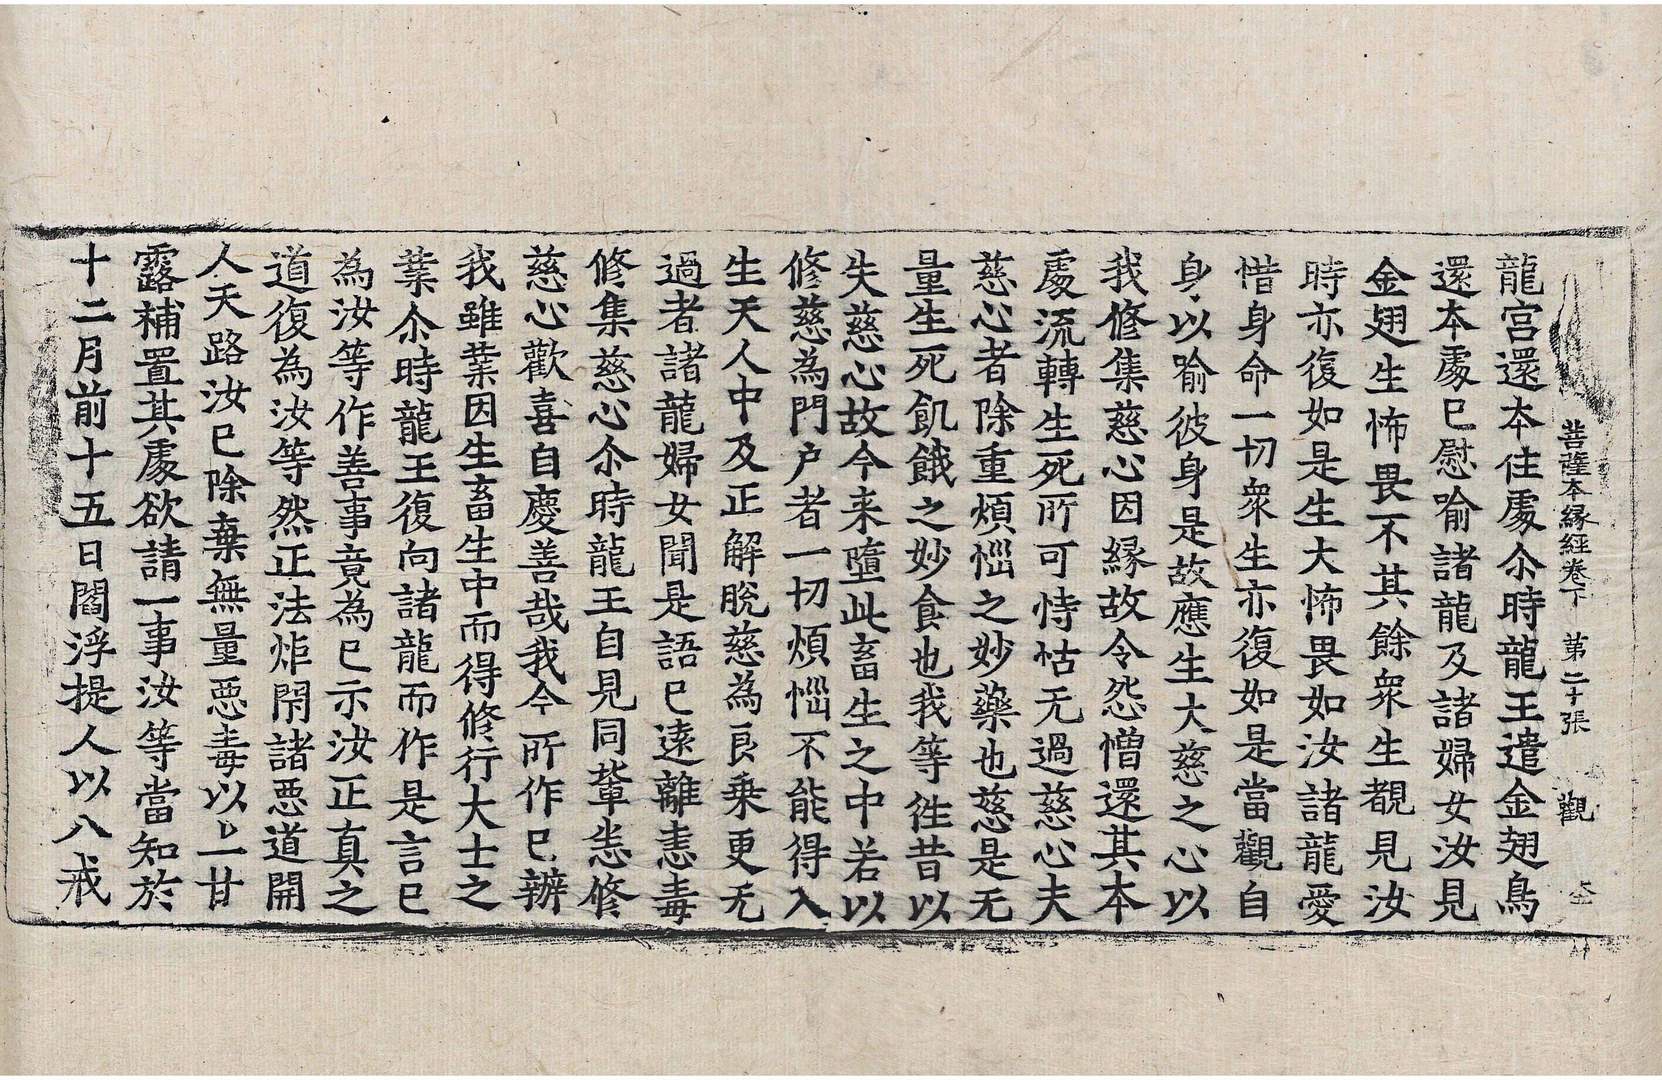 菩薩本縁經卷下　第二十張　觀
龍宮還本住處尒時龍王遣金翅鳥
還本處已慰喻諸龍及諸婦女汝見
金翅生怖畏不其餘衆生覩見汝
時亦復如是生大怖畏如汝諸龍愛
惜身命一切衆生亦復如是當觀自
身以喻彼身是故應生大慈之心以
我修集慈心因縁故令怨憎還其本
處流轉生死所可恃怙无過慈心夫
慈心者除重煩惱之妙藥也慈是无
量生死飢餓之妙食也我等徃昔以
失慈心故今来墮此畜生之中若以
修慈為門户者一切煩惱不能得入
生天人中及正解脫慈為良乗更无
過者諸龍婦女聞是語已遠離恚毒
修集慈心尒時龍王自見同軰恙修
慈心歡喜自慶善哉我今所作已辦
我雖業因生畜生中而得修行大士之
業尒時龍王復向諸龍而作是言已
為汝等作善事竟為已示汝正真之
道復為汝等然正法炬閇諸惡道開
人天路汝已除棄無量惡毒以上甘
露補置其處欲請一事汝等當知於
十二月前十五日閻浮提人以八戒